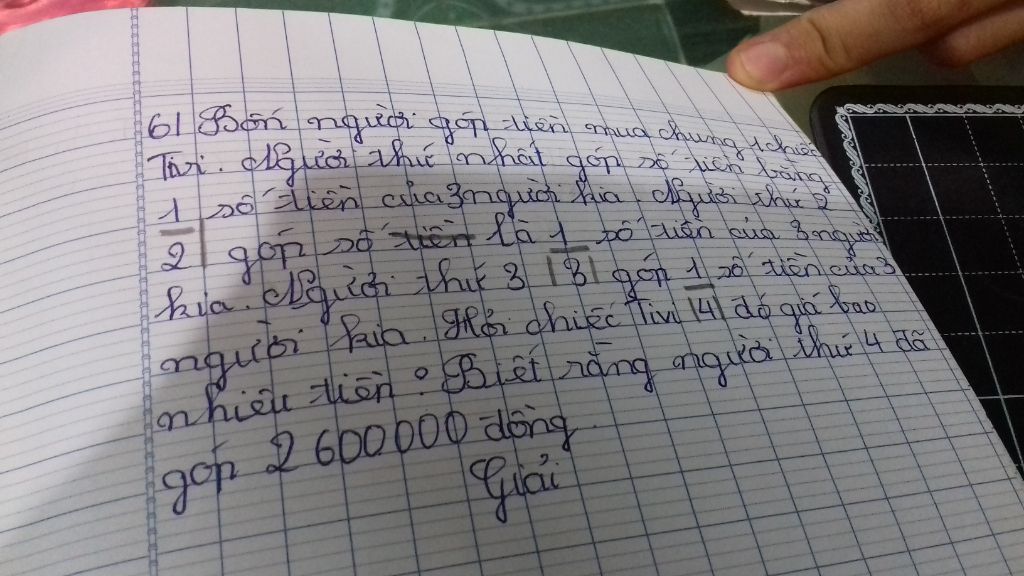 61 Bốn người góp tiền mua chung 1 chiếc
Tivi. Người thứ nhất góp số tiền bằng
1/2 số tiền của 3 người kia. Người thứ 2
góp số tiền là 1/3 số tiền của 3 người
kia. Người thứ 3 góp 1/4 số tiền của 3
người kia. Hỏi chiếc Tivi đó giá bao
nhiêu tiền? Biết rằng người thứ 4 đã
góp 2 600 000 đồng.
Giải